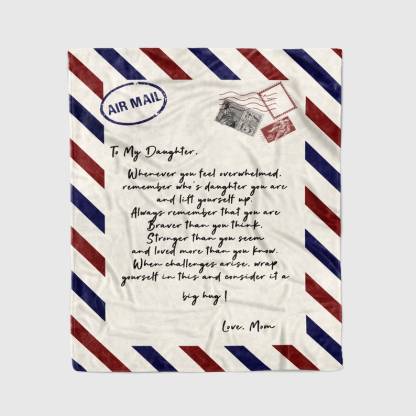 AIR MAIL
To My Daughter,
Whenever you feel overwhelmed,
remember who's daughter you are
and lift yourself up.
Always remember that you are
Braver than you think,
Stronger than you seem
and loved more than you know.
When challenges arise, wrap
yourself in this and consider it a
big hug !
Love, Mom